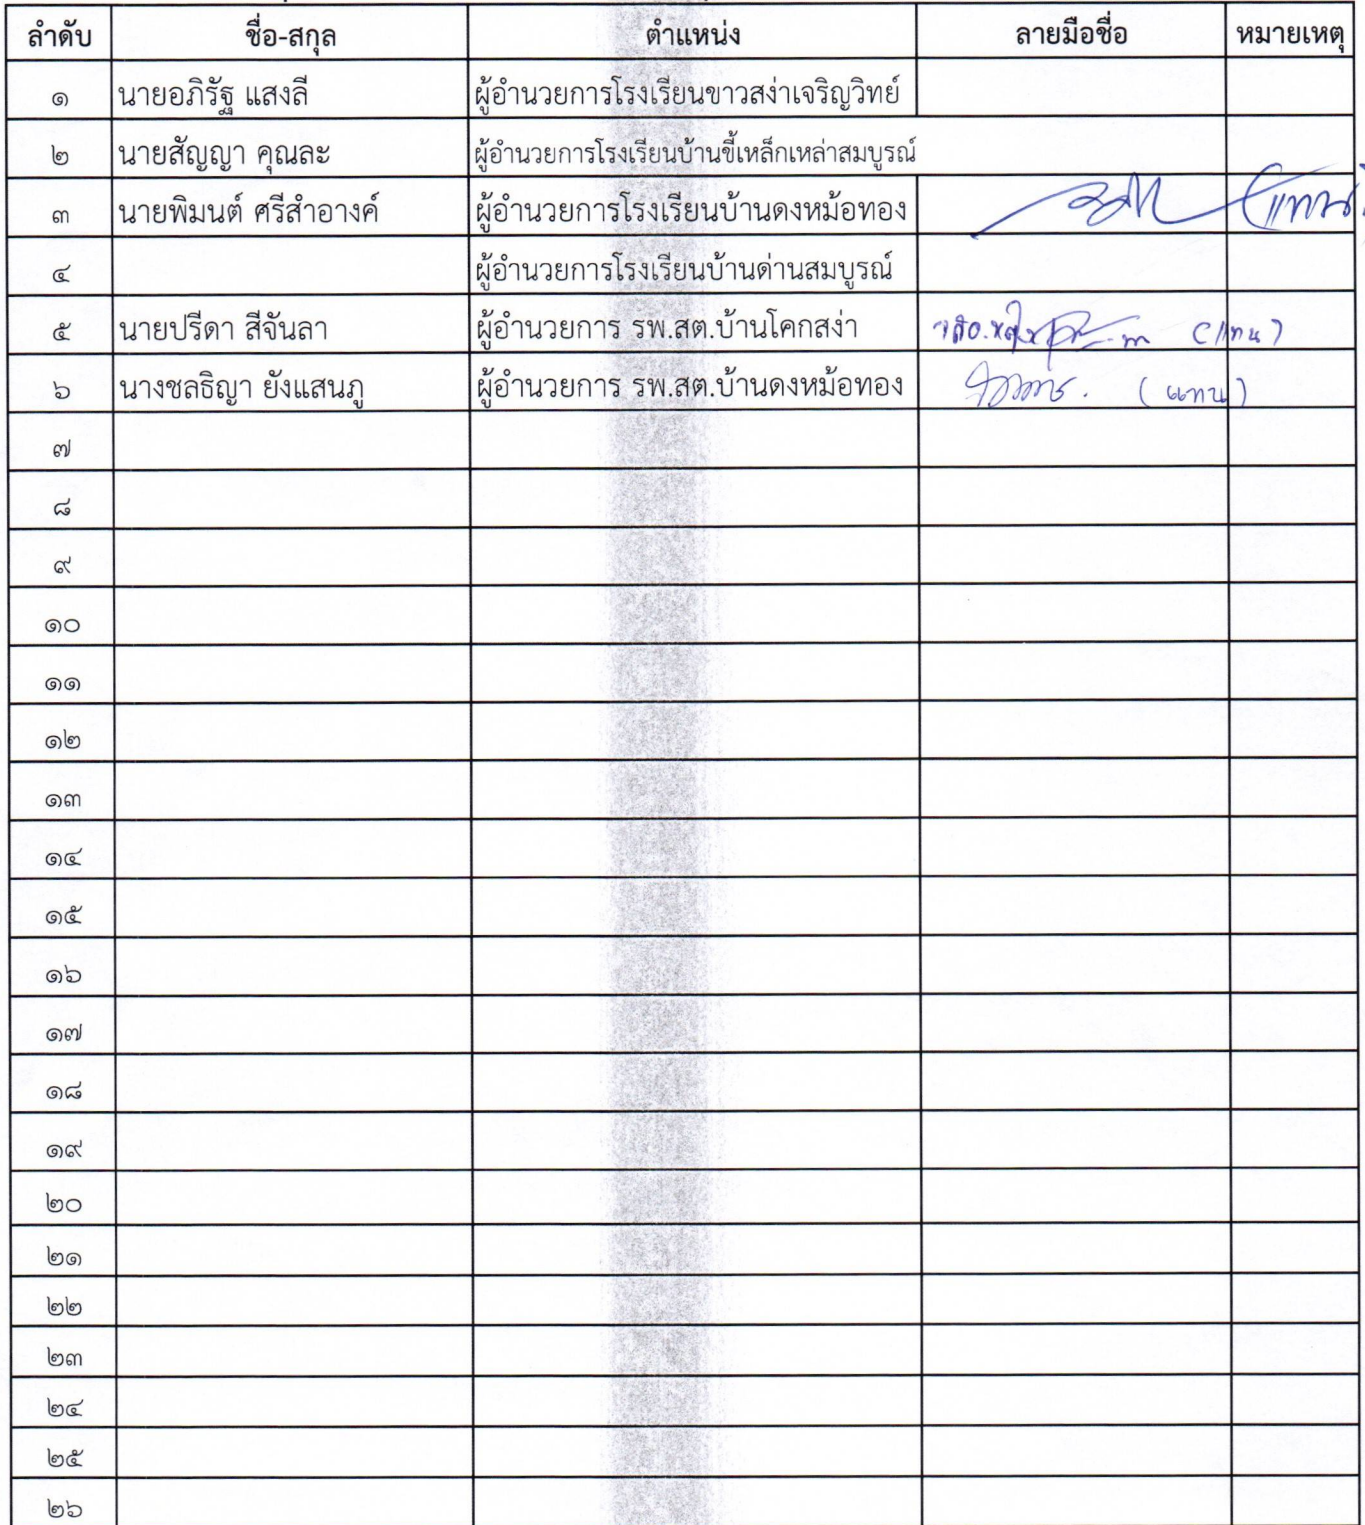 ลำดับ ชื่อ-สกุล ตำแหน่ง ลายมือชื่อ หมายเหตุ
๑ นายอภิรัฐ แสงลี ผู้อำนวยการโรงเรียนขาวสง่าเจริญวิทย์
๒ นายสัญญา คุณละ ผู้อำนวยการโรงเรียนบ้านขี้เหล็กเหล่าสมบูรณ์
๓ นายพิมนต์ ศรีสำอางค์ ผู้อำนวยการโรงเรียนบ้านดงหม้อทอง (แทน)
๔ ผู้อำนวยการโรงเรียนบ้านด่านสมบูรณ์
๕ นายปรีดา สีจันลา ผู้อำนวยการ รพ.สต.บ้านโคกสง่า (แทน)
๖ นางชลธิญา ยังแสนภู ผู้อำนวยการ รพ.สต.บ้านดงหม้อทอง (แทน)
๗
๘
๙
๑๐
๑๑
๑๒
๑๓
๑๔
๑๕
๑๖
๑๗
๑๘
๑๙
๒๐
๒๑
๒๒
๒๓
๒๔
๒๕
๒๖